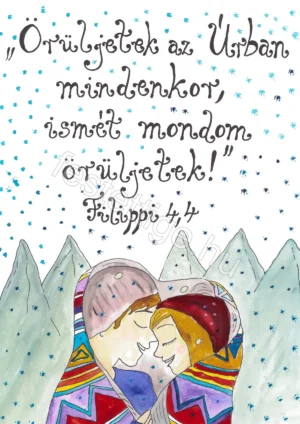 „Örüljetek az Úrban
mindenkor,
ismét mondom
örüljetek!”
Filippi 4,4